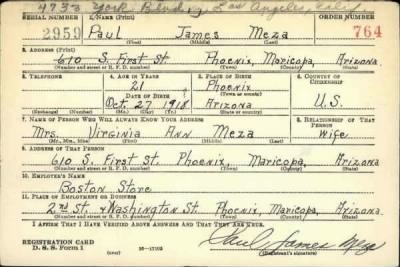 4733 York Blvd., Los Angeles, Calif.
SERIAL NUMBER 1. NAME (Print) ORDER NUMBER
2959 Paul James Meza 764
(First) (Middle) (Last)
2. ADDRESS (Print)
610 S. First St. Phoenix, Maricopa, Arizona
(Number and street or R. F. D. number) (Town) (County) (State)
3. TELEPHONE 4. AGE IN YEARS 5. PLACE OF BIRTH 6. COUNTRY OF CITIZENSHIP
21 Phoenix
DATE OF BIRTH (Town or county)
Oct. 27 1918 Arizona U.S.
(Exchange) (Number) (Mo.) (Day) (Yr.) (State or country)
7. NAME OF PERSON WHO WILL ALWAYS KNOW YOUR ADDRESS 8. RELATIONSHIP OF THAT PERSON
Mrs. Virginia Ann Meza Wife
(Mr., Mrs., Miss) (First) (Middle) (Last)
9. ADDRESS OF THAT PERSON
610 S. First St. Phoenix, Maricopa, Arizona
(Number and street or R. F. D. number) (Town) (County) (State)
10. EMPLOYER'S NAME
Boston Store
11. PLACE OF EMPLOYMENT OR BUSINESS
2nd St. & Washington St. Phoenix, Maricopa, Arizona
(Number and street or R. F. D. number) (Town) (County) (State)
I AFFIRM THAT I HAVE VERIFIED ABOVE ANSWERS AND THAT THEY ARE TRUE.
REGISTRATION CARD
D. S. S. FORM 1 (over) 16—17105 Paul James Meza
(Registrant's signature)